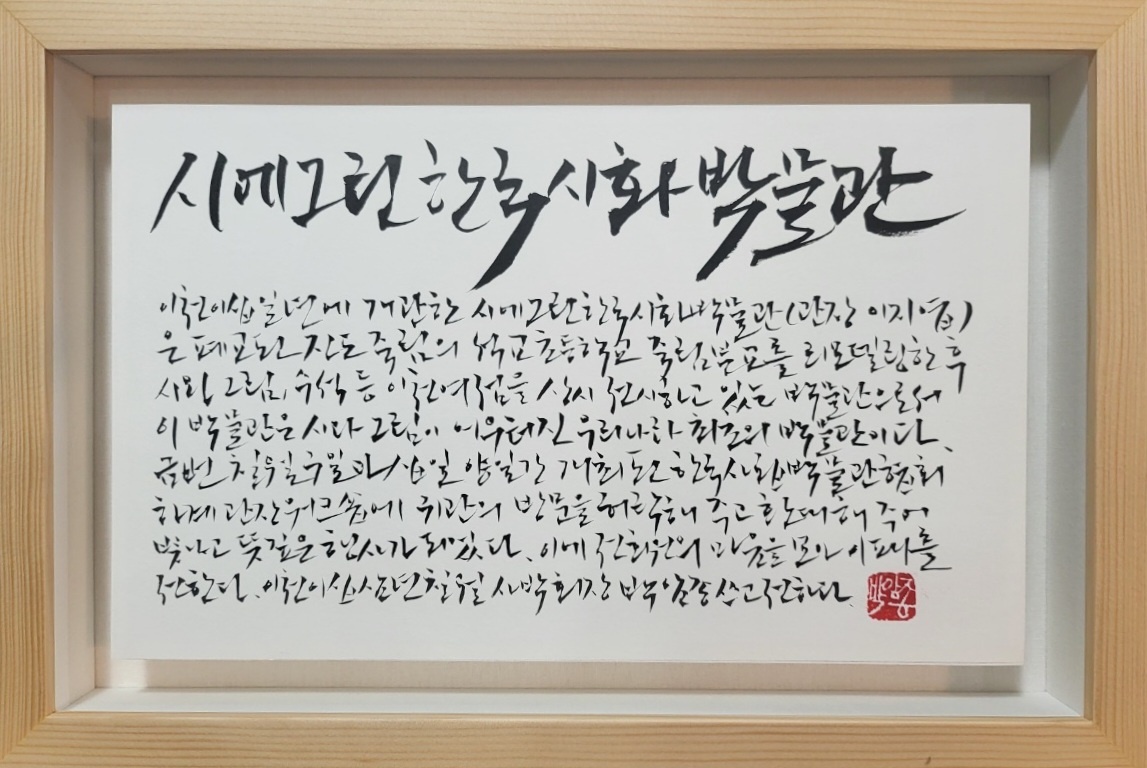 시에그린한국시화박물관
이천이십일년에 개관한 시에그린한국시화박물관(관장 이지엽)
은 폐교된 진도 죽림의 석교초등학교 죽림분교를 리모델링한 후
시화, 그림, 수석 등 이천여점을 상시 전시하고 있는 박물관으로서
이 박물관은 시와 그림이 어우러진 우리나라 최초의 박물관이다.
금번 칠월 과 십일 양일간 개최된 한국사립박물관협회
하계 관장워크숍에 귀관의 방문을 허락해 주고 환대해 주어
빛나고 뜻깊은 행사가 되었다. 이에 전회원의 마음을 모아 이 패를
전한다. 이천이십삼년 칠월 사박회장 쓰고 전하다.